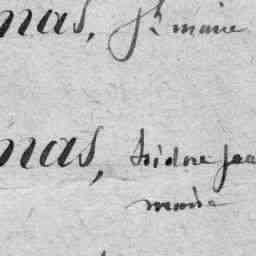 nas, Jh marie
nas, Isidore Jea
marie